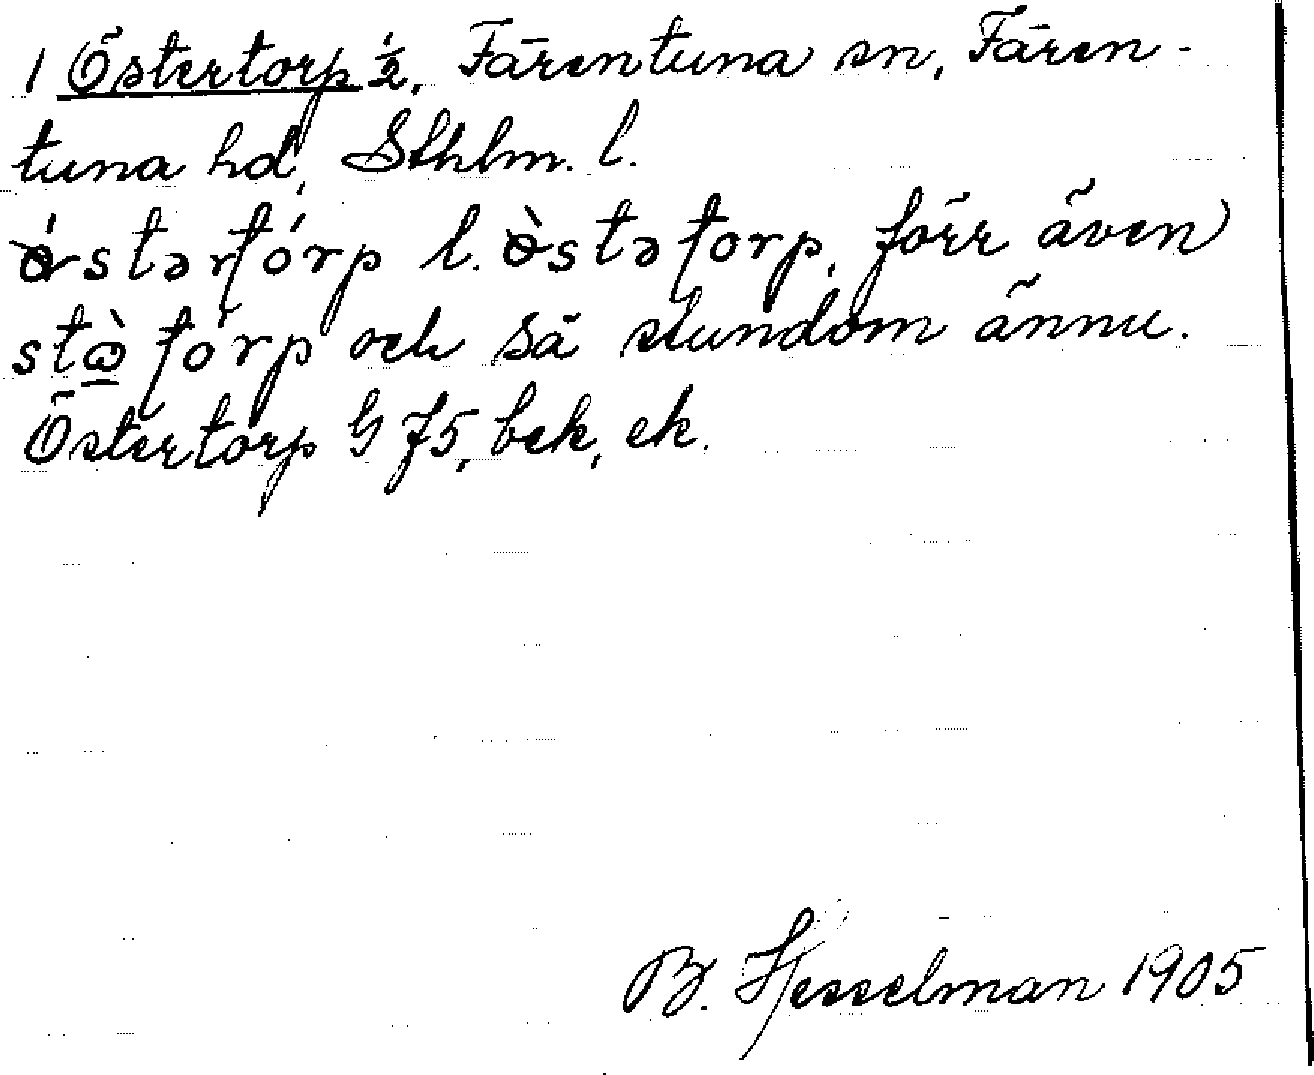 1 Östertorp ½, Färentuna sn, Fären-
tuna hd, Sthlm. l.
ǿstərtórp l. ø̀stətorp, förr även
och så stundom ännu.
Östertorp G 75, bek, ek.
B. Hesselman 1905